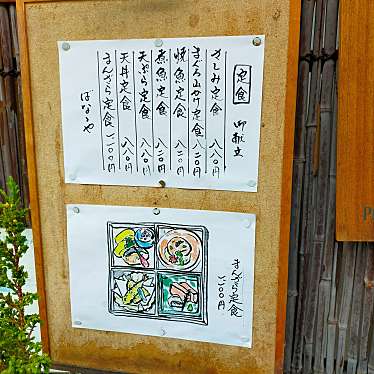 定食
御献立
さしみ定食 八八〇円
まぐろ山かけ定食 八二〇円
焼魚定食 八二〇円
煮魚定食 八八〇円
天ぷら定食 八八〇円
天丼定食 八八〇円
まんざら定食 一二〇〇円
ばなゝや
まんざら定食
一二〇〇円
P